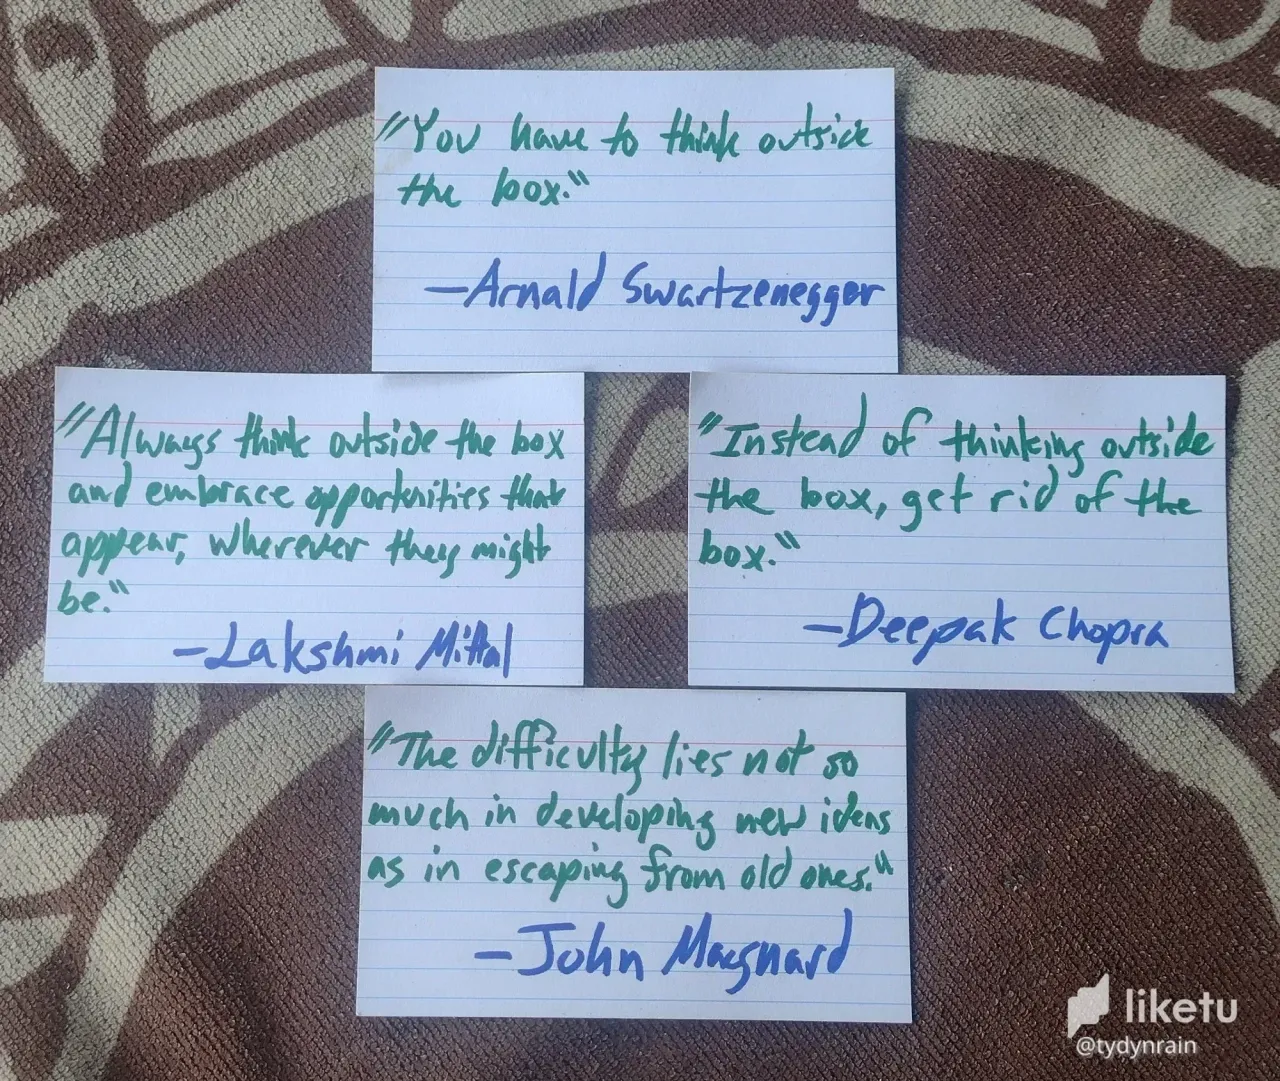 "You have to think outside
the box."
—Arnald Swartzenegger
"Always think outside the box
and embrace opportunities that
appear, wherever they might
be."
—Lakshmi Mittal
"Instead of thinking outside
the box, get rid of the
box."
—Deepak Chopra
"The difficulty lies not so
much in developing new ideas
as in escaping from old ones."
—John Maygnard
liketu
@tydynrain